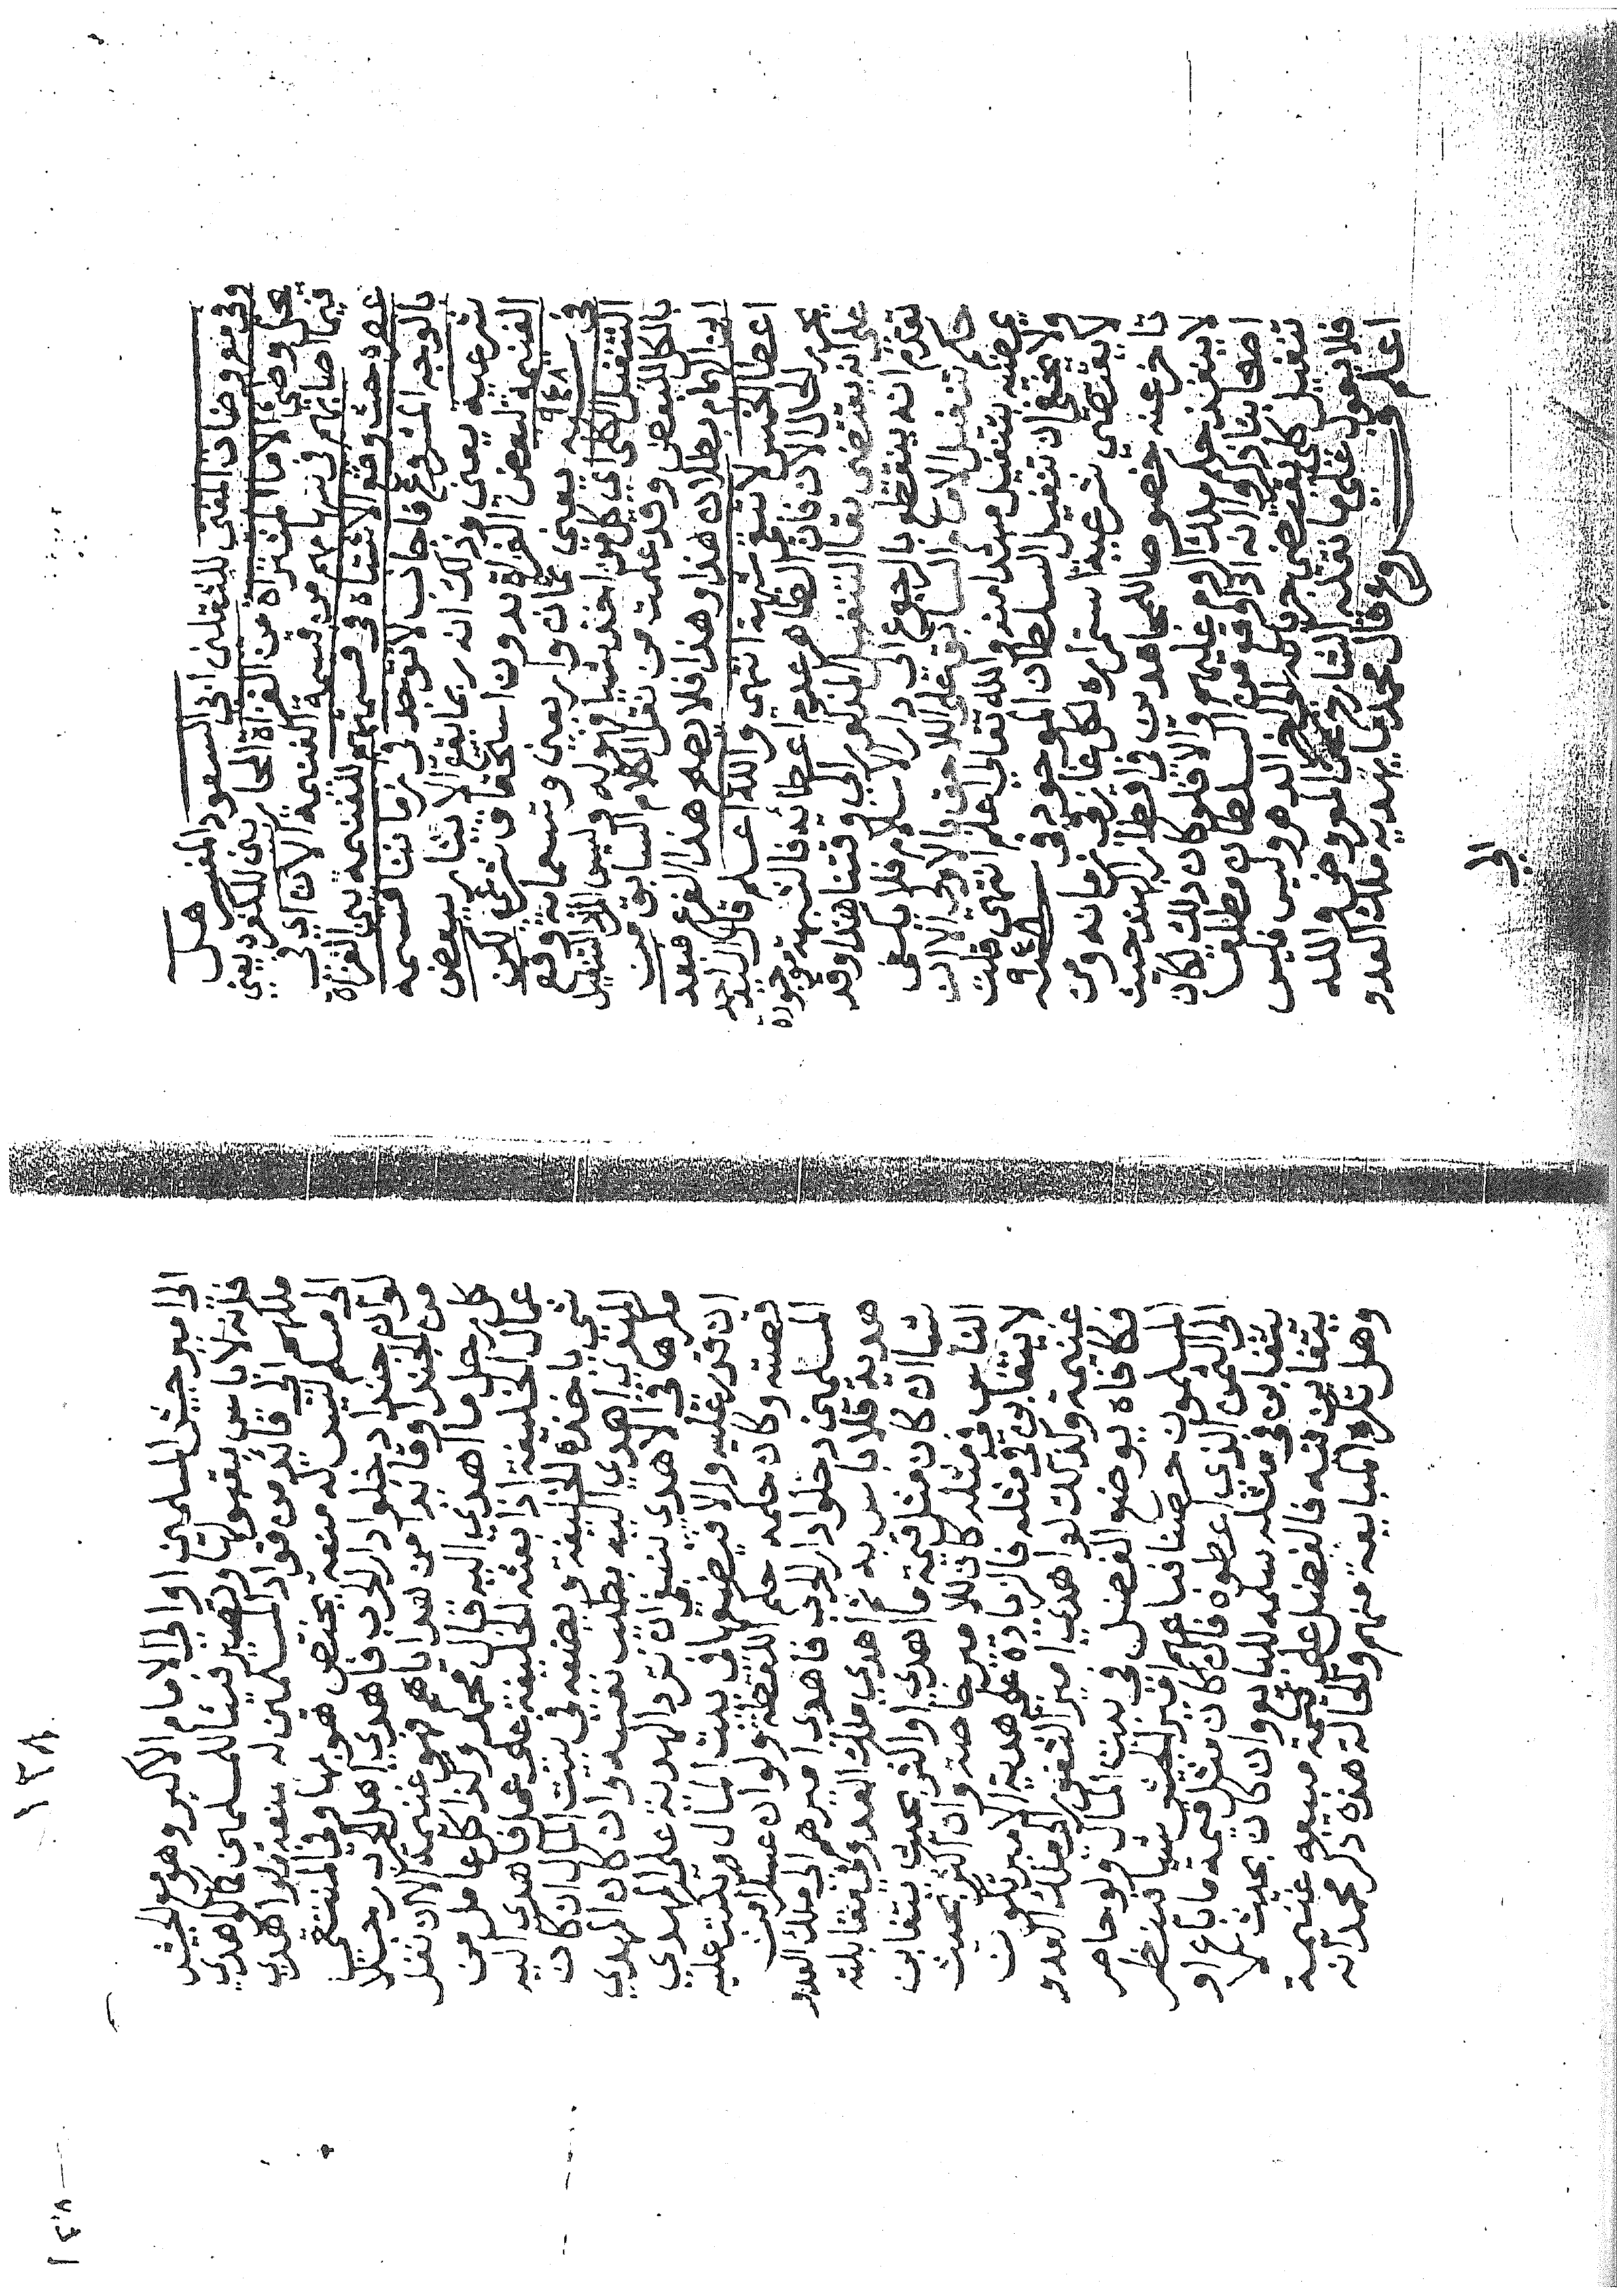 وفي معروضات المفتي للثقلين ابي السعود المفسر هل
يحل وطئ الاما المشتراة من الغزاة المحاربين للكفر يعني
فيما اصابهم في سهامهم من قسمة الغنيمة الان اذ في
عصره حيث وقع الاشتباه في قسمتهم للغنيمة بين الغزاة
بالوجه المشروع فاجاب لا توجد في زماننا قسمة
شرعية يعني وذلك انه ربما يقع الايثار ببعض
الغنيمة لبعض الغزاة بدون استحقاق شرعي لكن
في ٩٤٨ سنة يعني ثمان واربعين وتسعماية وقع
التنفيل الكلي اي كل من اخذ شيا فهو له وليس المراد التنفيل
بالكل للبعض وقد علمت من نقل الكلام السابق عن
ابن الهمام بطلان هذا وهذا فلا يصح هذا الفرع فبعد
اعطا الخمس لا تبقي شبهة انتهى والله اعلم قال البيري
غير الحال الان فان الظاهر عدم اعطائه فالشبهة موجودة
علي انه يقتضي بقا التنفيل المذكور الي وقتنا هذا وقد
تقدم انه ينقطع بالرجوع الي دار الاسلام فلا يبقى
حكم تنفيل الامام السابق علي اللاحق بالاولي الا ان
يمضيه بتنفيل مبتدا منه والله تعالي اعلم انتهي قلت
ولا يخفي ان تنفيل السلطان الموجود في ٩٤٨ سنة
لا يقتضي شرعية استمراره لكل غاز في زمانه ومن
تاخر عنه خصوصا للمجاهدين في اقطار الهند حيث
لا ينفذ حكم ملك الروم عليهم والا فلو كان ذلك لكان
اصحابنا ذكروا انه اذا وقع من السلطان مطلق
تنفيل كلي يقتضي جريانه الي اخر الدهر وليس فليس
فلا يعول علي ما نقله الشارح عن المعروضي والله
اعلم فروع قال محمد ما يهديه ملك العدو
الي
١٣٨
الي امير جيش المسلمين او الي الامام الاكبر وهو مع الجيش
فانه لا باس بقبولها وتصير فيئا للمسلمين كما لو اهدي
ملكهم الي قايد من قواد المسلمين له منعة ولو اهدي
الي مسلم ليس له منعة يختص هو بها وفي المنتقي
لو ان جندا دخلوا دار الحرب فاهدي اهل الحرب رجلا
من الجند او قايدا من هداياهم فهو غنيمة الا ان نفل
كل رجل ما اهدي اليه قال محمد وكذا كل عامل من
عمال الخليفة اذا بعثه الخليفة علي عمل فاهدي اليه
شي ياخذه الخليفة ويضعه في بيت المال ان كان
المهدي اهدي اليه بطيب نفسه وان كان المهدي
مكرها في الاهدي ينبغي ان ترد الهدية علي المهدي
ان قدر عليه والا فيضعها في بيت المال ويكتب عليه
قصته وكان حكمه حكم اللقطة ولو ان عسكرا من
المسلمين دخلوا دار الحرب فاهدي اميرهم الي ملك العدو
هدية فلا باس به ثم اهدي ملك العدو في مقابلة
شا ان كان مثل قيمة ما اهدي او اكثر بحيث يتغابن
الناس في مثله كان للامير خاصة وان اكثر بحيث
لا يتغابن في مثله فالزيادة علي هدية الامير يكون
غنيمة وكذلك لو اهدي امير الثغور الي ملك العدو
فكافاه يوضع الفضل في بيت المال ولو حاصر
المسلمون حصنا فباعهم امير الجيش شيا فينظر
الي الثمن الذي اعطوه فان كان مثل قيمة ما باع او
يتغابن في مثله سلم للبايع وان كان بحيث لا
يتغابن فيه فالفضل علي قيمة مبيعه غنيمة
وهل تكره المبايعة منهم والحالة هذه ذكر محمد انه